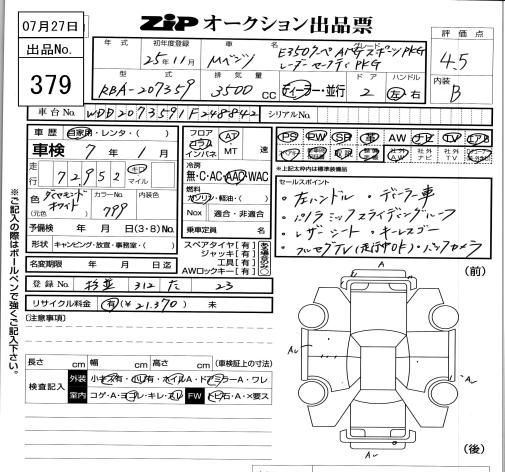 07月27日
ZIP オークション出品票
出品No.
379
評価点
4.5
内装
B
年式 初年度登録 車名 グレード
25年11月 Mベンツ E350クーペ AMGスポーツPKG
レーダーセーフティPKG
型式 排気量 ドア ハンドル
RBA-207359 3500CC ディーラー・並行 2 左・右
車台No. WDD2073591F248842 シリアルNo.
車歴 自家用・レンタ・( )
車検 7年1月
走行 72,952 キロ マイル
色 ダイヤモンドホワイト (元色) カラーNo. 799 内装色
予備検 年 月 日(3・8)No.
形状 キャンピング・放送・事務室・( )
名変期限 年 月 日迄
フロア コラム インパネ AT MT 速
冷房
無・C・AC・AAC・WAC
燃料
ガソリン・軽油・( )
Nox 適合・非適合
乗車定員 名
スペアタイヤ[有]
ジャッキ[有]
工具[有]
AWロックキー[有]
PS PW SR 革 AW ナビ TV エアB
※上記太枠内は標準装備品
セールスポイント
・左ハンドル ・ディーラー車
・パノラミックスライディングルーフ
・レザーシート ・キーレスゴー
・フルセグTV(走行OK)・バックカメラ
登録No. 杉並 312 た 23
リサイクル料金 有(¥21,370) 未
〔注意事項〕
(前)
A
A
(後)
長さ cm 幅 cm 高さ cm (車検証上の寸法)
検査記入 外装 小キズ有・凹有・ホイルA・ドアミラーA・ワレ
室内 コゲ・A・ヨゴレ・キレ・スレ FW トビ石・A・×要ス
※ご記入の際はボールペンで強くご記入下さい。